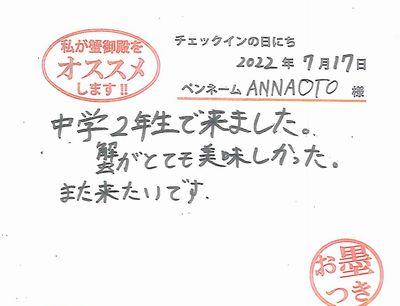 私が蟹御殿を
オススメ
します!!
チェックインの日にち
2022年7月17日
ペンネーム ANNAOTO 様
中学2年生で来ました。
蟹がとても美味しかった。
また来たいです.
お墨
つき